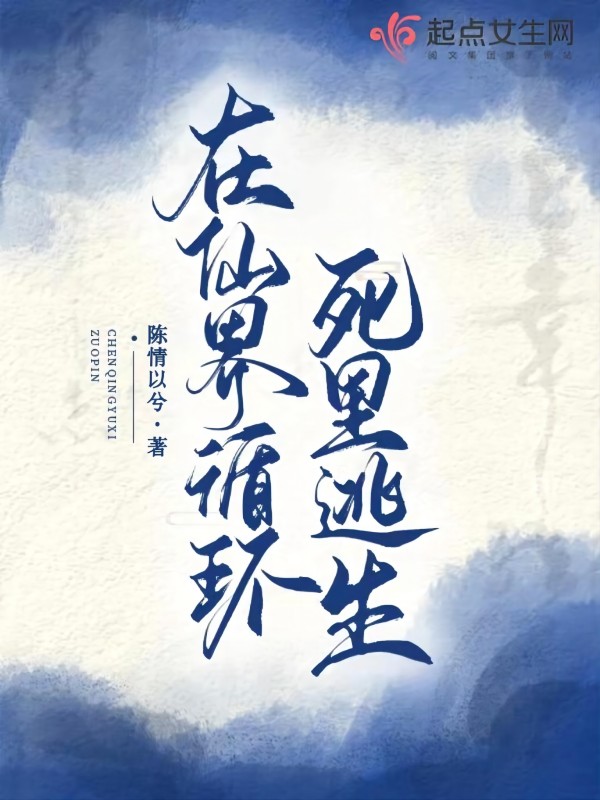 起点女生网
阅文集团旗下网站
在仙界循环
死里逃生
陈情以兮·著
CHENQINGYUXI
ZUOPIN